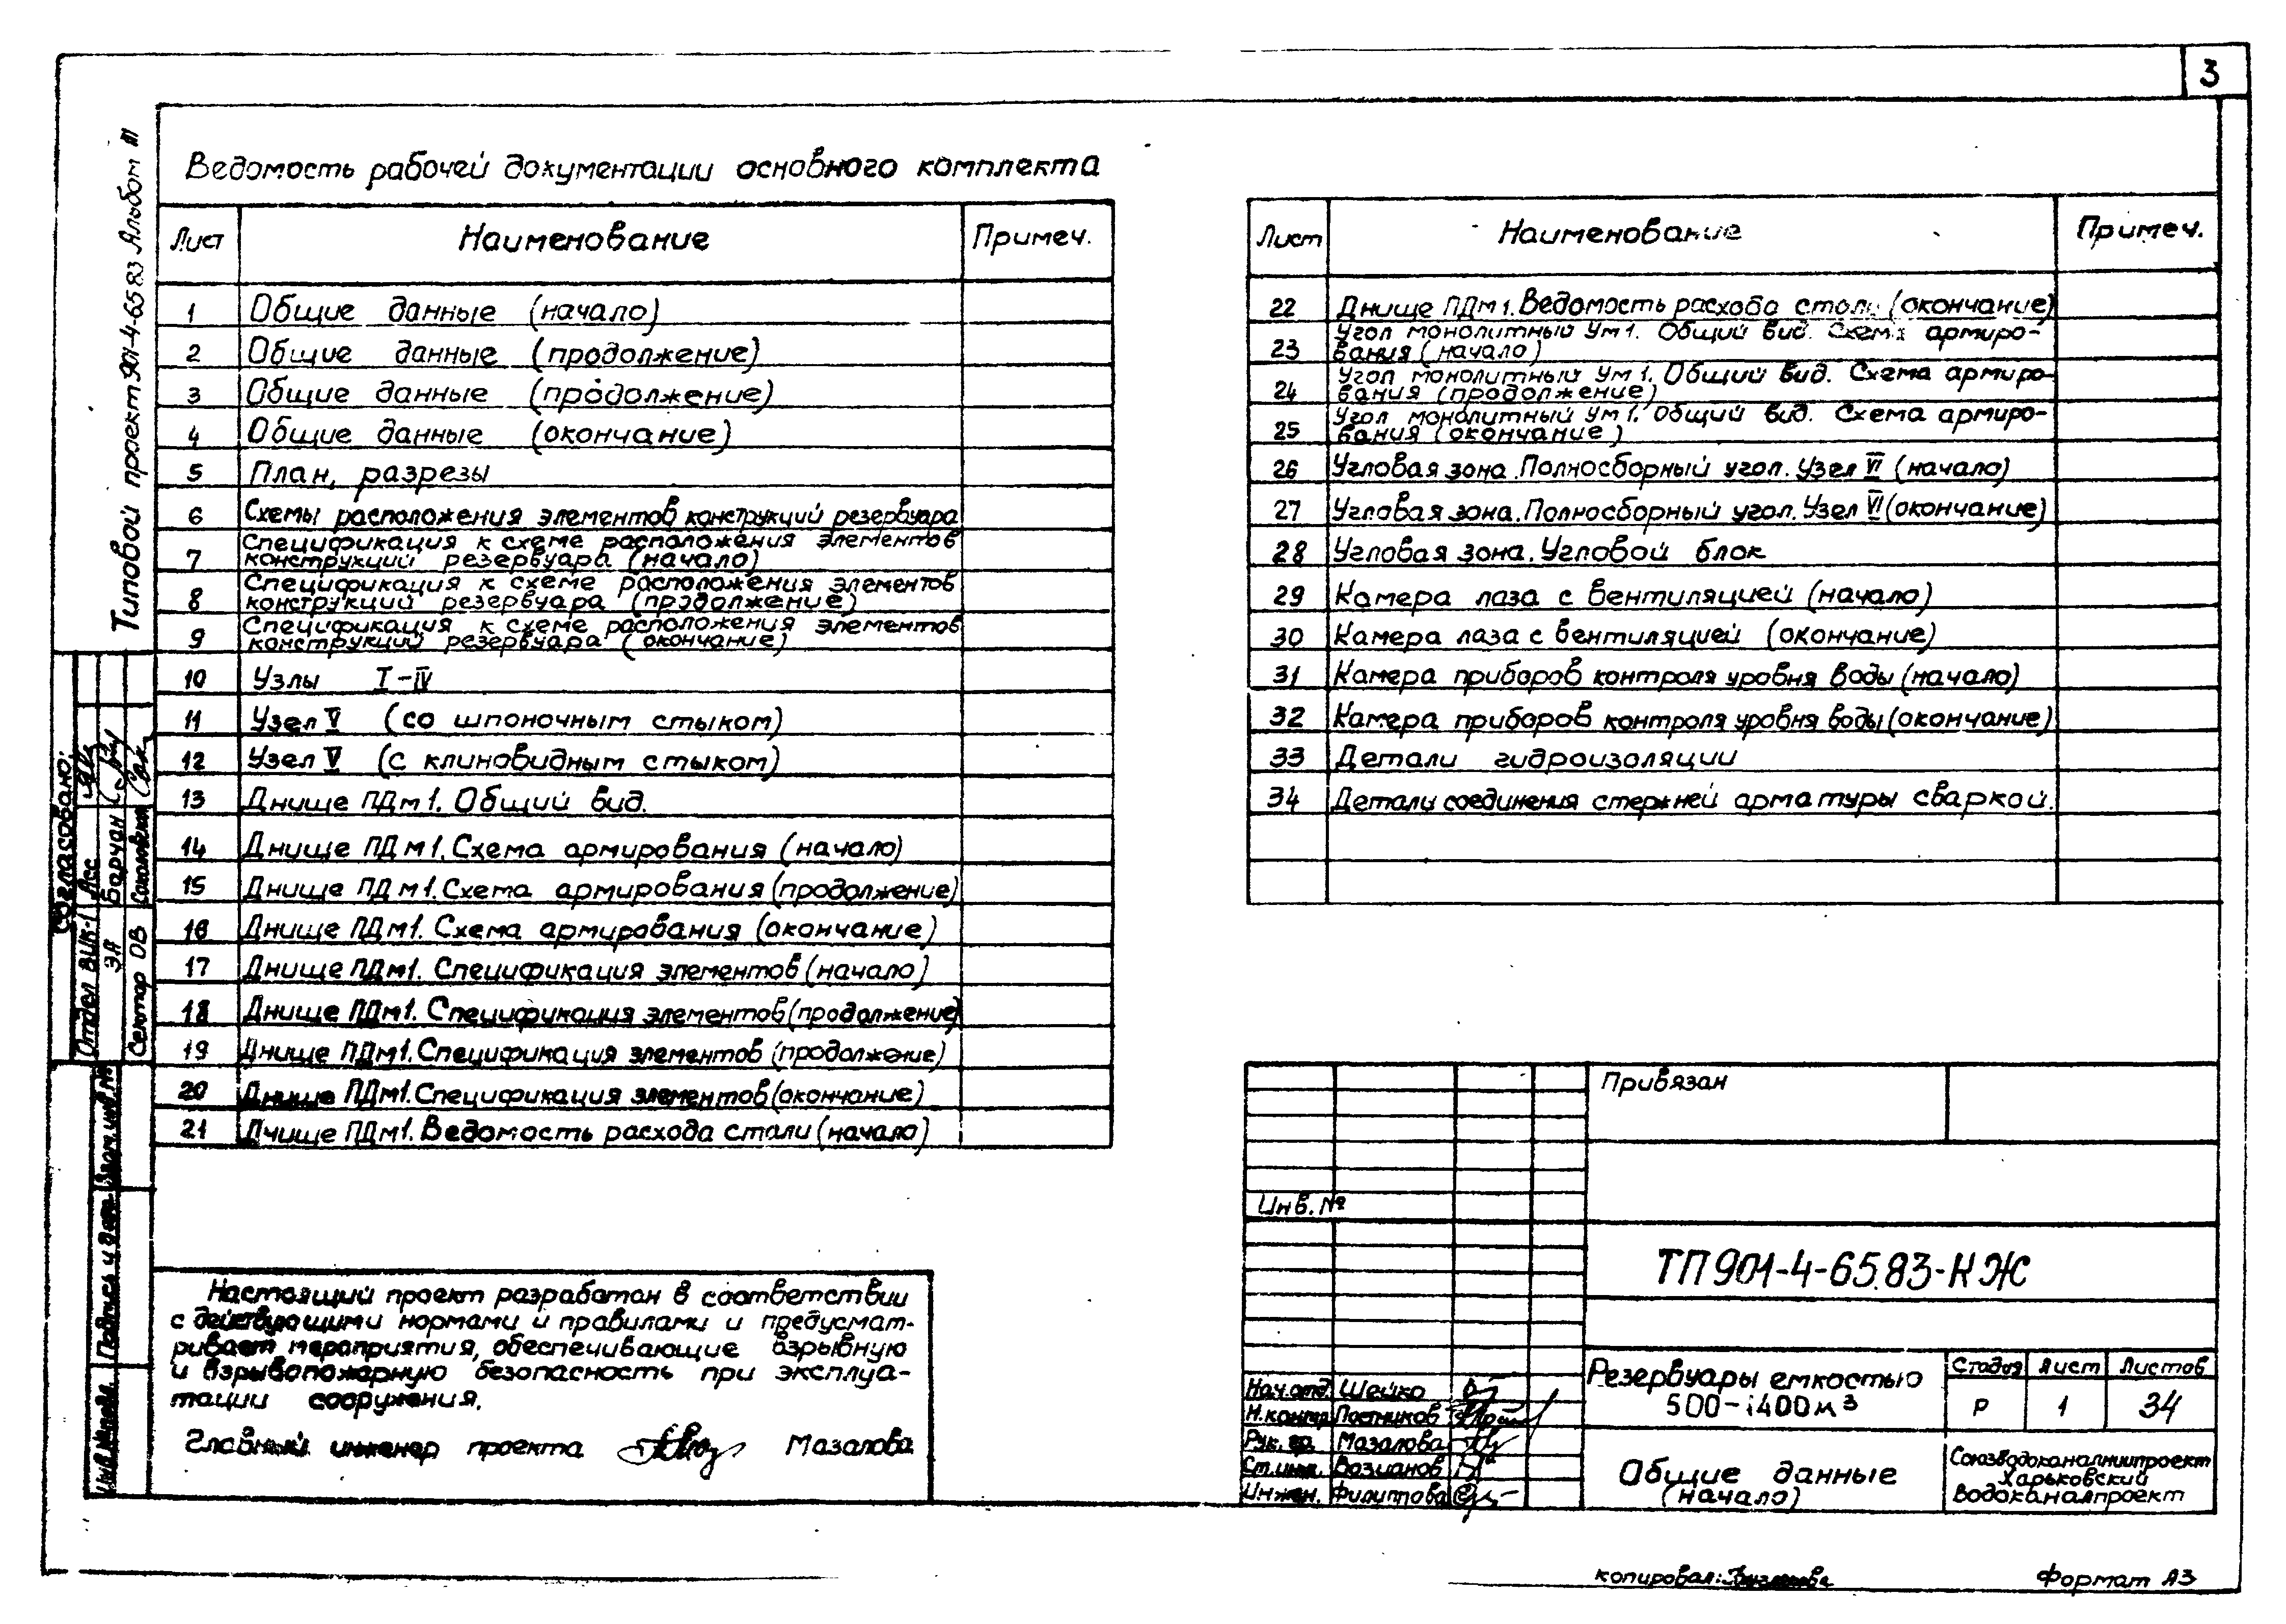 3
Типовой проект 901-4-65.83 Альбом III
Ведомость рабочей документации основного комплекта
Лист Наименование Примеч.
1 Общие данные (начало)
2 Общие данные (продолжение)
3 Общие данные (продолжение)
4 Общие данные (окончание)
5 План, разрезы
6 Схемы расположения элементов конструкций резервуара
7 Спецификация к схеме расположения элементов
конструкций резервуара (начало)
8 Спецификация к схеме расположения элементов
конструкций резервуара (продолжение)
9 Спецификация к схеме расположения элементов
конструкций резервуара (окончание)
10 Узлы I-IV
11 Узел V (со шпоночным стыком)
12 Узел V (с клиновидным стыком)
13 Днище ПДм1. Общий вид.
14 Днище ПДм1. Схема армирования (начало)
15 Днище ПДм1. Схема армирования (продолжение)
16 Днище ПДм1. Схема армирования (окончание)
17 Днище ПДм1. Спецификация элементов (начало)
18 Днище ПДм1. Спецификация элементов (продолжение)
19 Днище ПДм1. Спецификация элементов (продолжение)
20 Днище ПДм1. Спецификация элементов (окончание)
21 Днище ПДм1. Ведомость расхода стали (начало)
Лист Наименование Примеч.
22 Днище ПДм1. Ведомость расхода стали (окончание)
23 Угол монолитный Ум1. Общий вид. Схема армиро-
вания (начало)
24 Угол монолитный Ум1. Общий вид. Схема армиро-
вания (продолжение)
25 Угол монолитный Ум1. Общий вид. Схема армиро-
вания (окончание)
26 Угловая зона. Полносборный угол. Узел VI (начало)
27 Угловая зона. Полносборный угол. Узел VI (окончание)
28 Угловая зона. Угловой блок
29 Камера лаза с вентиляцией (начало)
30 Камера лаза с вентиляцией (окончание)
31 Камера приборов контроля уровня воды (начало)
32 Камера приборов контроля уровня воды (окончание)
33 Детали гидроизоляции
34 Детали соединения стержней арматуры сваркой.
Согласовано:
Отдел ВИК-1 Асс
ЭА Барчан
Сектор ОВ
Взам. инв. №
Подпись и дата
Инв. № подл.
Настоящий проект разработан в соответствии
с действующими нормами и правилами и предусмат-
ривает мероприятия, обеспечивающие взрывную
и взрывопожарную безопасность при эксплуа-
тации сооружения.
Главный инженер проекта Мазалова
Привязан
Инв. №
ТП 901-4-65.83-КЖ
Нач. отд. Шейко
Н. контр. Постников
Рук. гр. Мазалова
Ст. инж. Возианов
Инжен. Филиппова
Резервуары емкостью
500-1400 м³
Стадия Лист Листов
Р 1 34
Общие данные
(начало)
Союзводоканалниипроект
Харьковский
Водоканалпроект
копировал:
Формат А3